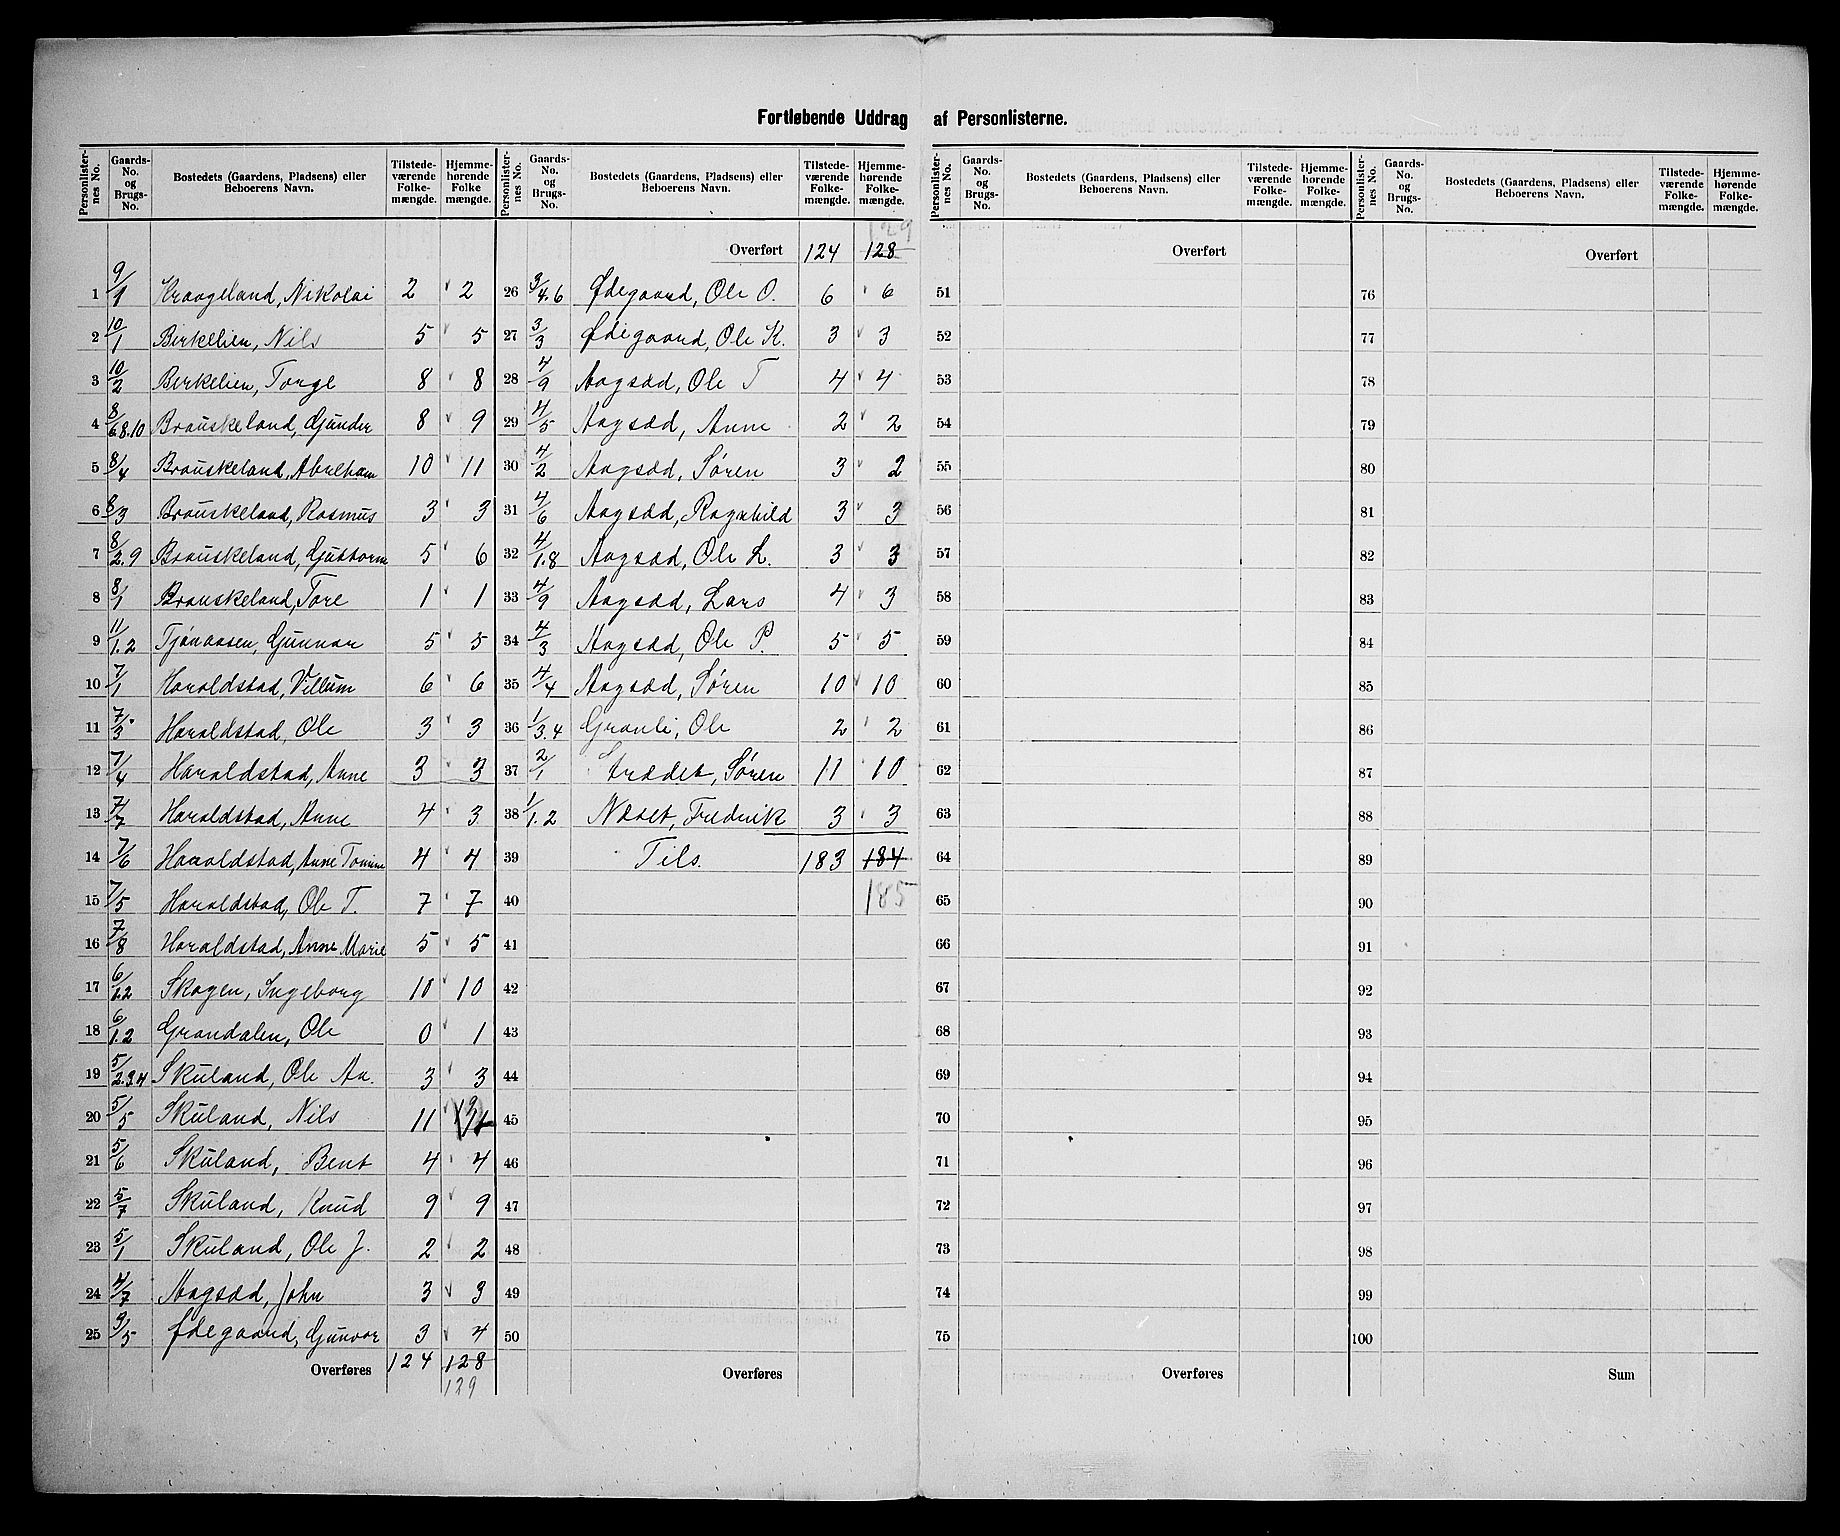 Fortløbende Uddrag af Personlisterne.
Personlisternes No. | Gaards-No. og Brugs-No. | Bostedets (Gaardens, Pladsens) eller Beboerens Navn. | Tilstedeværende Folkemængde. | Hjemmehørende Folkemængde.
1 9/1 Kraageland, Nikolai 2 2
2 10/1 Birkelien, Nils 5 5
3 10/2 Birkelien, Torge 8 8
4 8/6.8.10 Brauskeland, Gunder 8 9
5 8/4 Brauskeland, Abraham 10 11
6 8/3 Brauskeland, Rasmus 3 3
7 8/2.9 Brauskeland, Guttorm 5 6
8 8/1 Brauskeland, Tore 1 1
9 11/1.2 Tjønaasen, Gunnar 5 5
10 7/1 Haraldstad, Villum 6 6
11 7/3 Haraldstad, Ole 3 3
12 7/4 Haraldstad, Anne 3 3
13 7/7 Haraldstad, Anne 4 3
14 7/6 Haraldstad, Anne Tomine 4 4
15 7/5 Haraldstad, Ole T. 7 7
16 7/8 Haraldstad, Anne Marie 5 5
17 6/1.2 Skogen, Ingeborg 10 10
18 6/1.2 Grandalen, Ole 0 1
19 5/2.3.4 Skuland, Ole Aa. 3 3
20 5/5 Skuland, Nils 11
21 5/6 Skuland, Bent 4 4
22 5/7 Skuland, Knud 9 9
23 5/1 Skuland, Ole J. 2 2
24 4/7 Aagsæd, John 3 3
25 3/5 Ødegaard, Gunvor 3 4
Overføres 124 128
129
Personlisternes No. | Gaards-No. og Brugs-No. | Bostedets (Gaardens, Pladsens) eller Beboerens Navn. | Tilstedeværende Folkemængde. | Hjemmehørende Folkemængde.
129
Overført 124 128
26 3/4.6 Ødegaard, Ole O. 6 6
27 3/3 Ødegaard, Ole K. 3 3
28 4/9 Aagsæd, Ole T 4 4
29 4/5 Aagsæd, Anne 2 2
30 4/2 Aagsæd, Søren 3 2
31 4/6 Aagsæd, Ragnhild 3 3
32 4/1.8 Aagsæd, Ole L. 3 3
33 4/9 Aagsæd, Lars 4 3
34 4/3 Aagsæd, Ole P. 5 5
35 4/4 Aagsæd, Søren 10 10
36 1/3.4 Granli, Ole 2 2
37 2/1 Strædet, Søren 11 10
38 1/1.2 Næset, Fredrik 3 3
39 Tils. 183 184
40 185
41
42
43
44
45
46
47
48
49
50
Overføres
Personlisternes No. | Gaards-No. og Brugs-No. | Bostedets (Gaardens, Pladsens) eller Beboerens Navn. | Tilstedeværende Folkemængde. | Hjemmehørende Folkemængde.
Overført
51
52
53
54
55
56
57
58
59
60
61
62
63
64
65
66
67
68
69
70
71
72
73
74
75
Overføres
Personlisternes No. | Gaards-No. og Brugs-No. | Bostedets (Gaardens, Pladsens) eller Beboerens Navn. | Tilstedeværende Folkemængde. | Hjemmehørende Folkemængde.
Overført
76
77
78
79
80
81
82
83
84
85
86
87
88
89
90
91
92
93
94
95
96
97
98
99
100
Sum